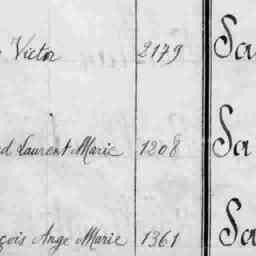 Victor 2179 Sa
Laurent Marie 1208 Sa
çois Ange Marie 1361 Sa